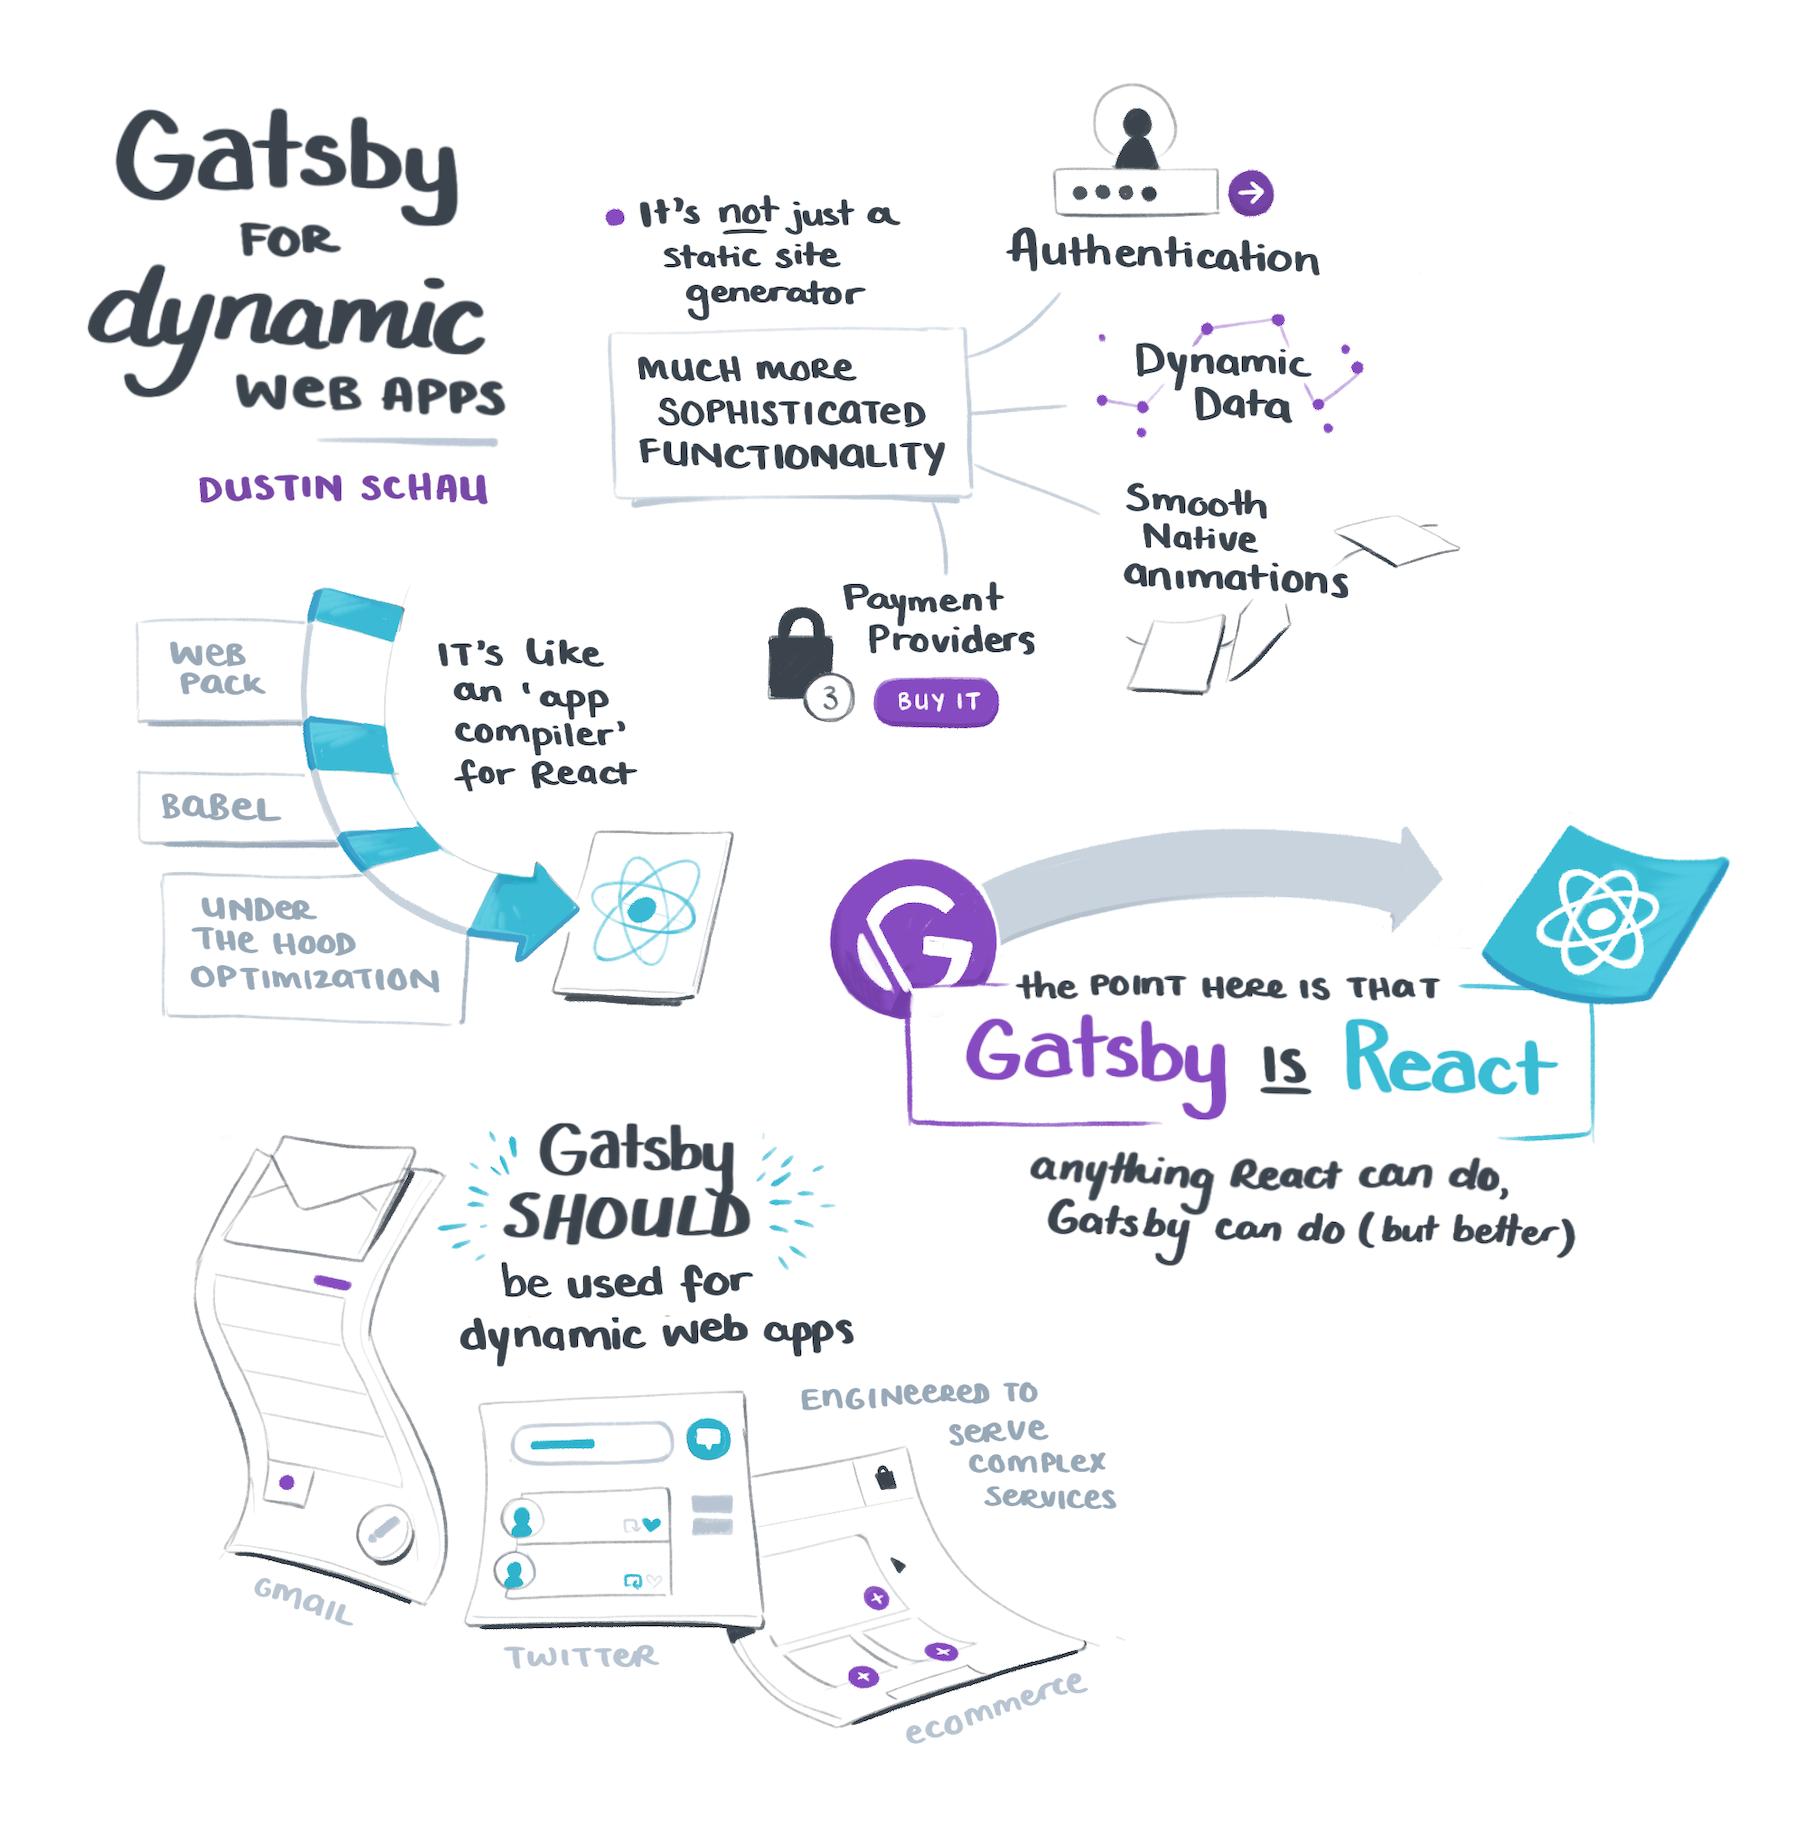 Gatsby
FOR
dynamic
WEB APPS
DUSTIN SCHAU
It's not just a
static site
generator
MUCH MORE
SOPHISTICATED
FUNCTIONALITY
Authentication
Dynamic
Data
Smooth
Native
animations
Payment
Providers
3
BUY IT
WEB
PACK
BABEL
UNDER
THE HOOD
OPTIMIZATION
IT's like
an 'app
compiler'
for React
G
the POINT HERE IS THAT
Gatsby IS React
anything React can do,
Gatsby can do (but better)
Gatsby
SHOULD
be used for
dynamic web apps
ENGINEERED TO
SERVE
COMPLEX
SERVICES
GMAIL
TWITTER
ecommerce